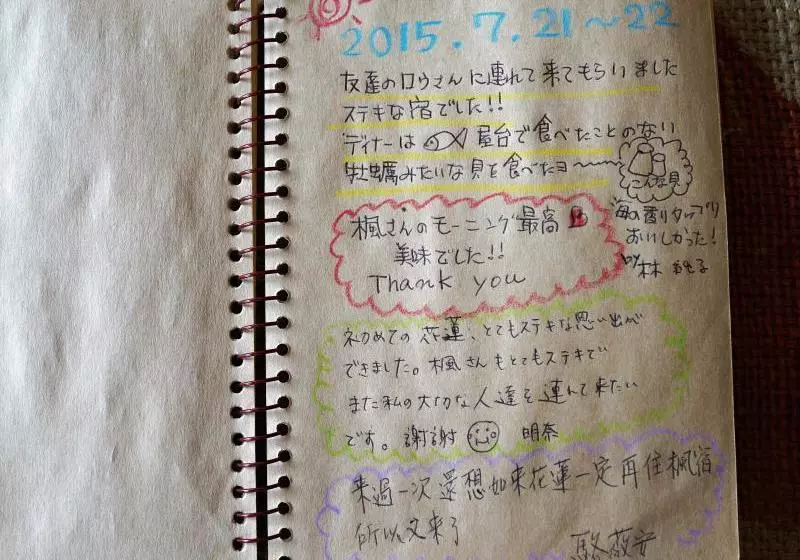 2015.7.21~22
友達のロウさんに連れて来てもらいました
ステキな宿でした!!
ディナーは 屋台で食べたことのない
牡蠣みたいな貝を食べたヨ〜
こんな貝
海の香りタップリ
おいしかった!
by 林
楓さんのモーニング最高
美味でした!!
Thank you
初めての花蓮、とてもステキな思い出が
できました。楓さんもとてもステキで
また私の大切な人達を連れて来たい
です。謝謝 明奈
来過一次還想如来花蓮一定再住楓宿
所以又来了